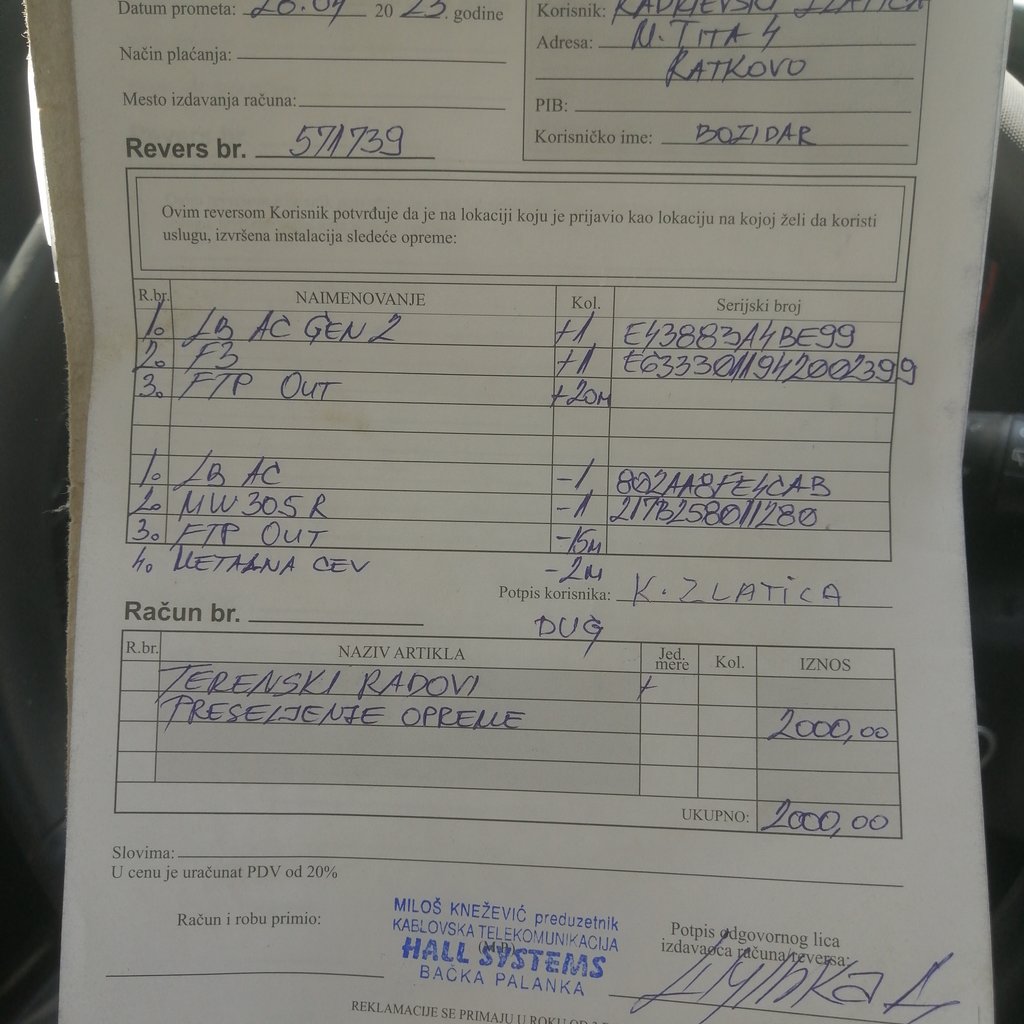 Datum prometa: 20 23. godine
Korisnik: ZLATICA
Adresa: M. TITA 4
RATKOVO
Način plaćanja:
Mesto izdavanja računa:
PIB:
Korisničko ime: BOZIDAR
Revers br. 571739
Ovim reversom Korisnik potvrđuje da je na lokaciji koju je prijavio kao lokaciju na kojoj želi da koristi
uslugu, izvršena instalacija sledeće opreme:
R.br. NAIMENOVANJE Kol. Serijski broj
1. LB AC GEN 2 +1 E43883A4BE99
2. F3 +1 E6333011942002399
3. FTP OUT +20m
1. LB AC -1 802AA8FE4CAB
2. MW 305 R -1 217B258011280
3. FTP OUT -15m
4. METALNA CEV -2m
Potpis korisnika: K. ZLATICA
Račun br.
DUG
R.br. NAZIV ARTIKLA Jed. mere Kol. IZNOS
TERENSKI RADOVI +
PRESELJENJE OPREME 2000,00
UKUPNO: 2000,00
Slovima:
U cenu je uračunat PDV od 20%
Račun i robu primio:
MILOŠ KNEŽEVIĆ preduzetnik
KABLOVSKA TELEKOMUNIKACIJA
(M.P.)
HALL SYSTEMS
BAČKA PALANKA
Potpis odgovornog lica
izdavaoca računa/reversa:
REKLAMACIJE SE PRIMAJU U ROKU OD